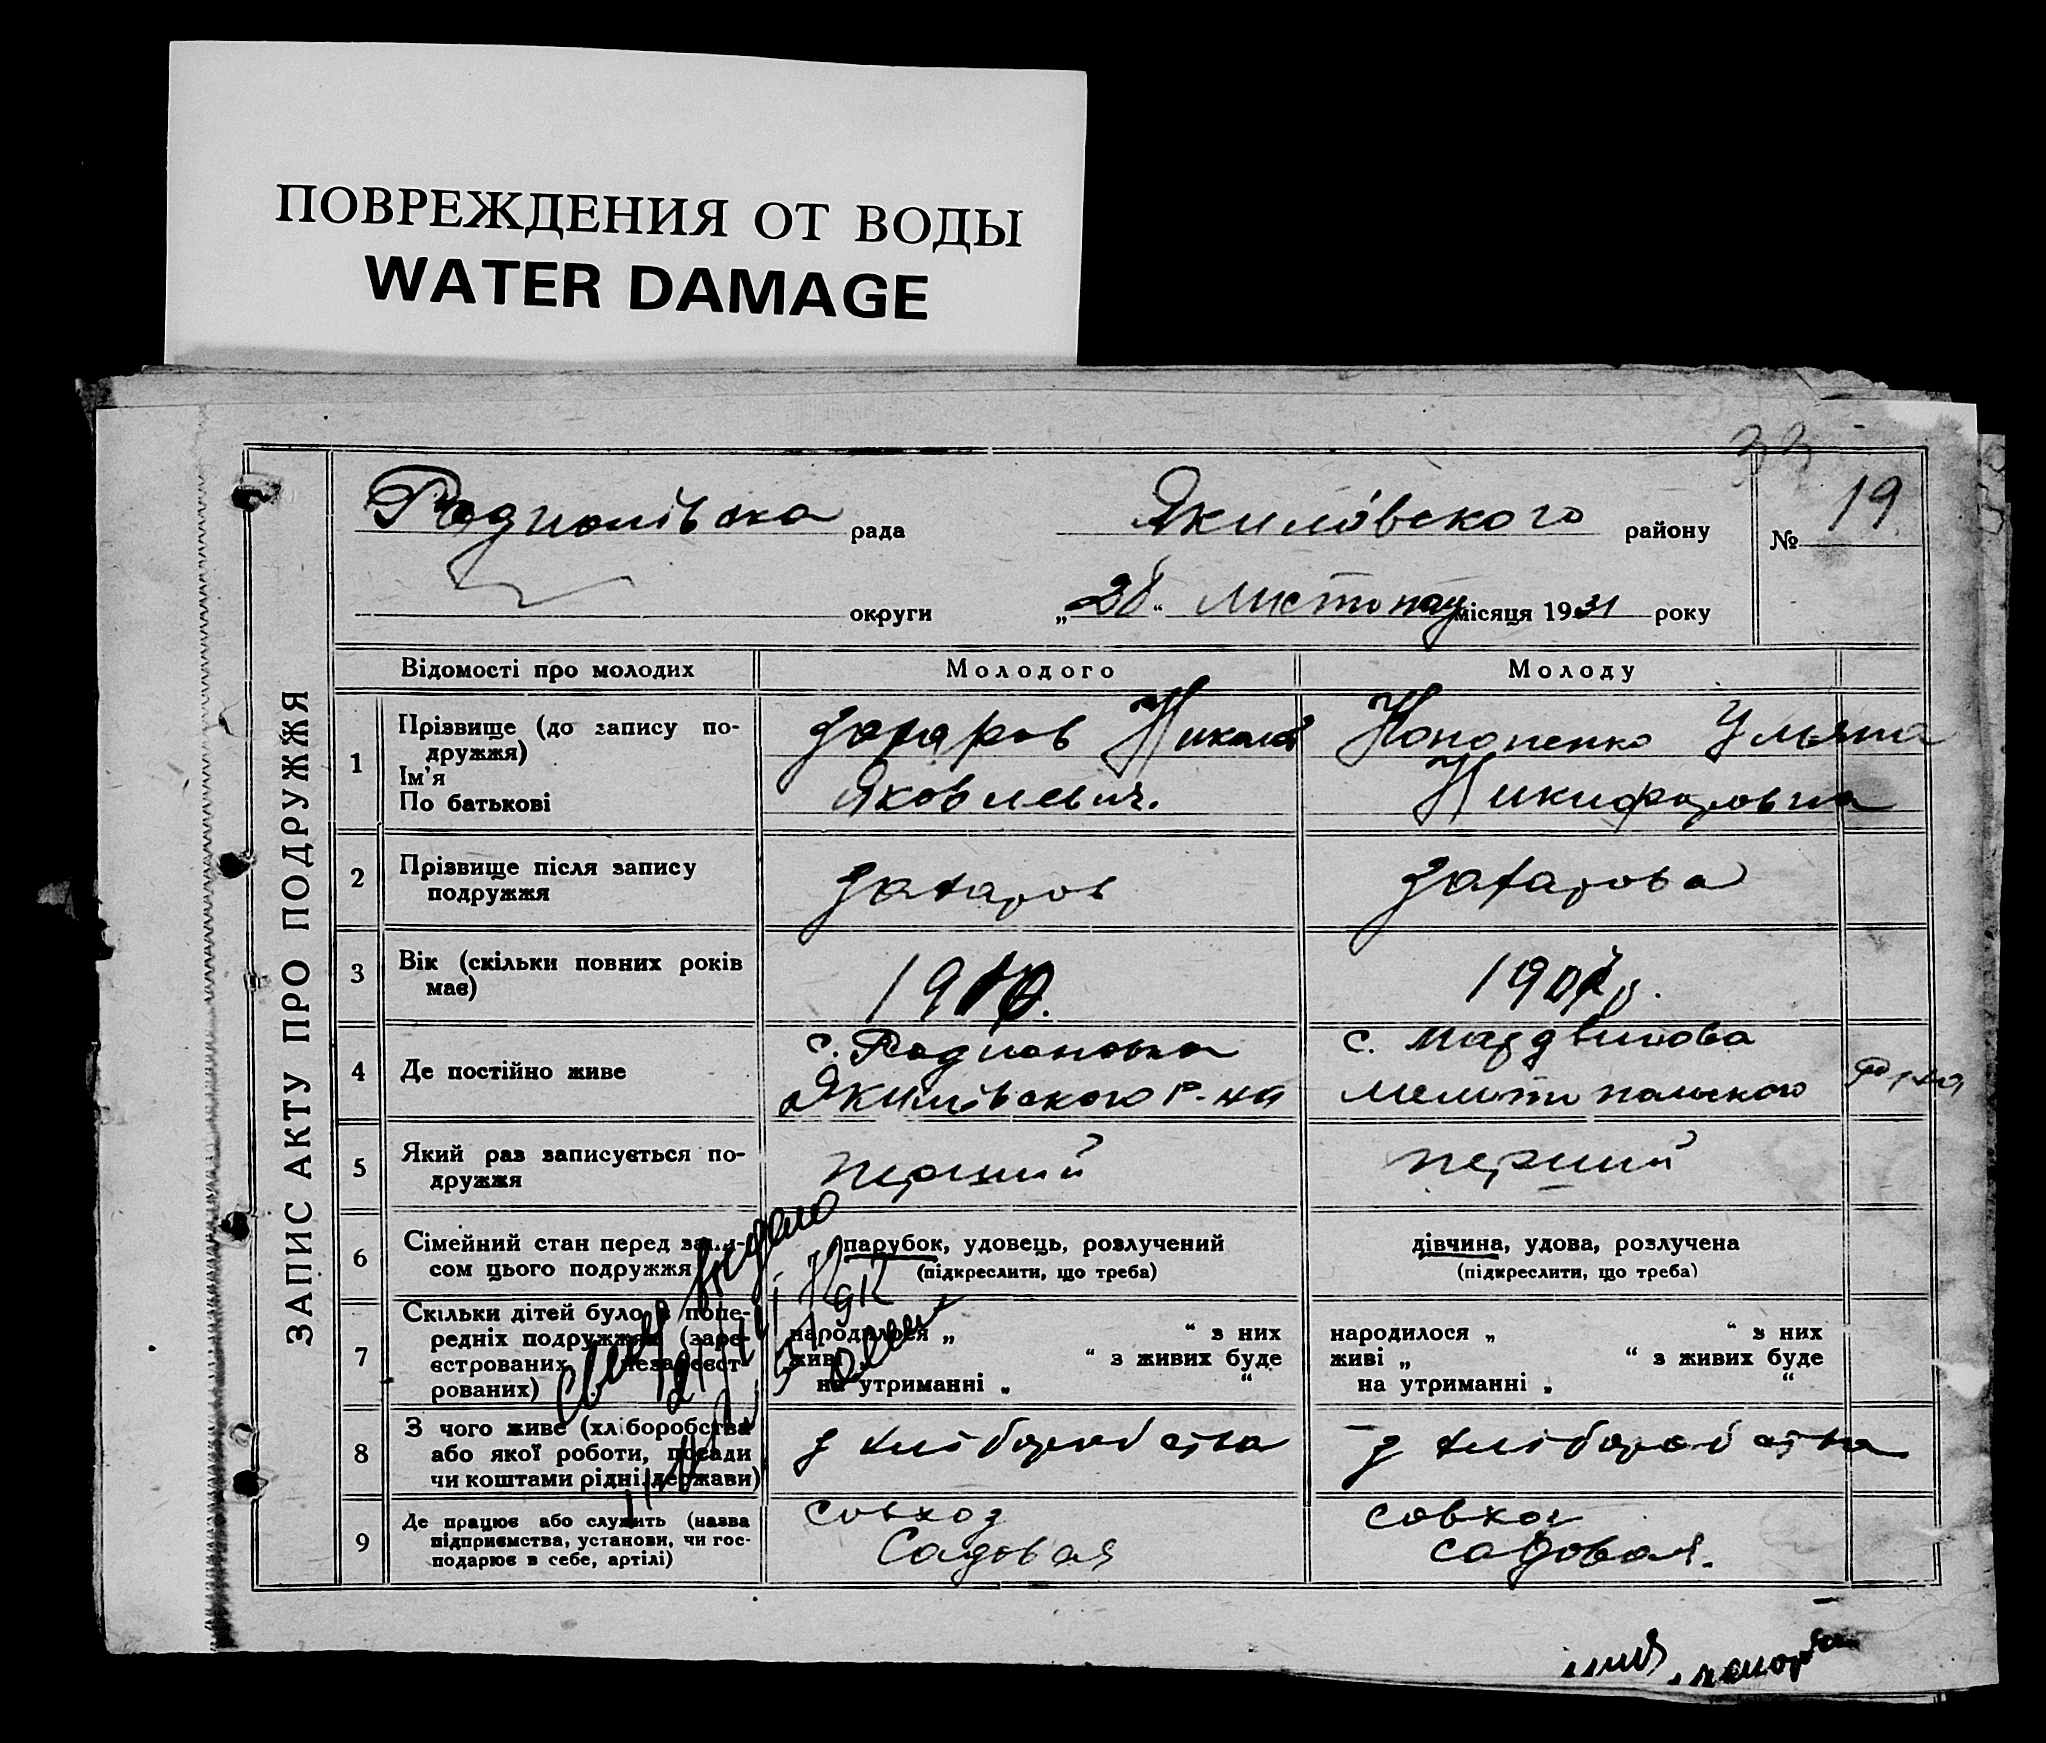 ПОВРЕЖДЕНИЯ ОТ ВОДЫ
WATER DAMAGE
33
ЗАПИС АКТУ ПРО ПОДРУЖЖЯ
Родионівска рада Якимовского району № 19
округи „28“ листопад місяця 1931 року
Відомості про молодих Молодого Молоду
1 Прізвище (до запису по-
дружжя)
Ім'я
По батькові
Захаров Николай
Яковлевич.
Кононенко Ульяна
Никифоровна
2 Прізвище після запису
подружжя
Захаров
Захарова
3 Вік (скільки повних років
має)
4 Де постійно живе
с. Родионовка
Якимівського р-на
с. Мардвиновa
Мелитопольского р-на
5 Який раз записується по-
дружжя
перший
перший
6 Сімейний стан перед
сом цього подружжя
парубок, удовець, розлучений
(підкреслити, що треба)
дівчина, удова, розлучена
(підкреслити, що треба)
7 Скільки дітей було в попе-
редніх подружжях (заре-
єстрованих незареєст-
рованих)
народилося „ “ з них
живі „ “ з живих буде
на утриманні „ “
народилося „ “ з них
живі „ “ з живих буде
на утриманні „ “
видано
8 З чого живе (хліборобства
або якої роботи, посади
чи коштами рідні, держави)
з хліборобства
з хліборобства
9 Де працює або служить (назва
підприємства, установи, чи гос-
подарює в себе, артілі)
совхоз
Садовая
совхоз
садовая.